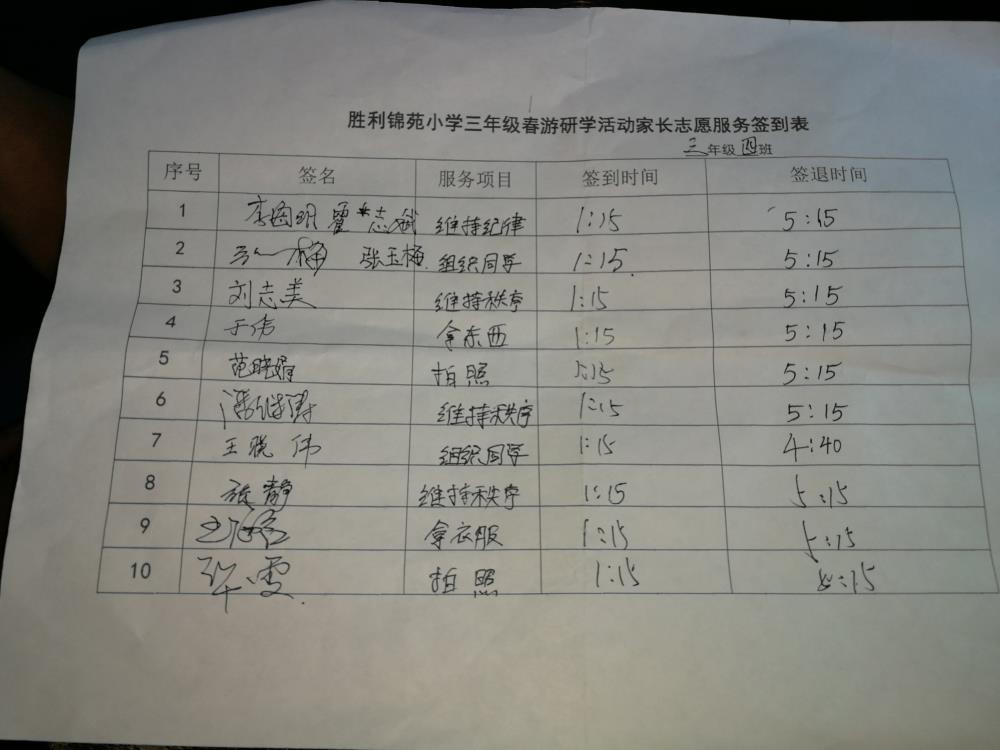 胜利锦苑小学三年级春游研学活动家长志愿服务签到表
三年级四班
序号 签名 服务项目 签到时间 签退时间
1 志斌 维持纪律 1:15 5:15
2 张玉梅 组织同学 1:15 5:15
3 刘志美 维持秩序 1:15 5:15
4 于伟 拿东西 1:15 5:15
5 范晓娟 拍照 1:15 5:15
6 维持秩序 1:15 5:15
7 王晓伟 组织同学 1:15 4:40
8 张静 维持秩序 1:15 5:15
9 拿衣服 1:15 5:15
10 雯 拍照 1:15 5:15